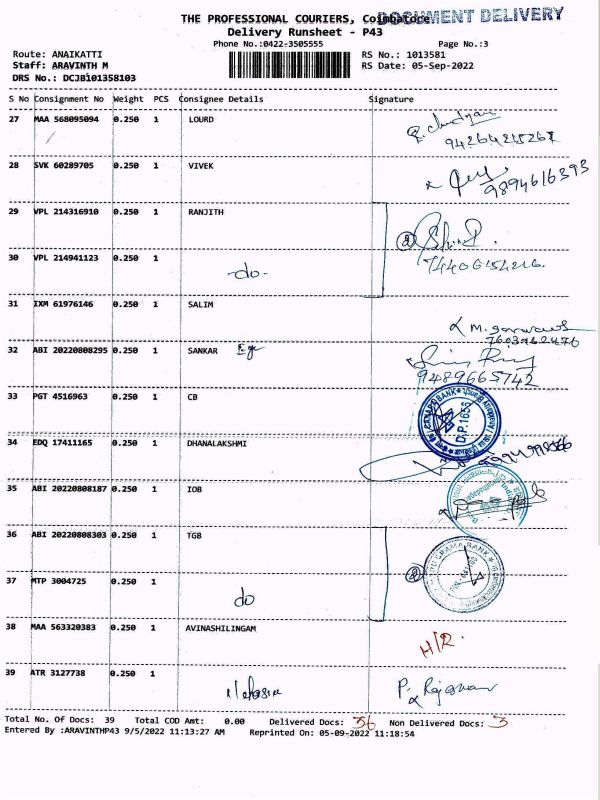 DOCUMENT DELIVERY
THE PROFESSIONAL COURIERS, Coimbatore
Delivery Runsheet - P43
Phone No.:0422-3505555 Page No.:3
Route: ANAIKATTI RS No.: 1013581
Staff: ARAVINTH M RS Date: 05-Sep-2022
DRS No.: DCJB101358103
S No Consignment No Weight PCS Consignee Details Signature
27 MAA 568095094 0.250 1 LOURD
28 SVK 60289705 0.250 1 VIVEK
9894616393
29 VPL 214316910 0.250 1 RANJITH
②
30 VPL 214941123 0.250 1 -do-
31 IXM 61976146 0.250 1 SALIM
32 ABI 20220808295 0.250 1 SANKAR
9489665742
33 PGT 4516963 0.250 1 CB
D.P.1655
34 EDQ 17411165 0.250 1 DHANALAKSHMI
35 ABI 20220808187 0.250 1 IOB
36 ABI 20220808303 0.250 1 TGB
② GRAMA BANK
37 MTP 3004725 0.250 1 do
38 MAA 563320383 0.250 1 AVINASHILINGAM H/R.
39 ATR 3127738 0.250 1
Total No. Of Docs: 39 Total COD Amt: 0.00 Delivered Docs: 36 Non Delivered Docs: 3
Entered By :ARAVINTHP43 9/5/2022 11:13:27 AM Reprinted On: 05-09-2022 11:18:54